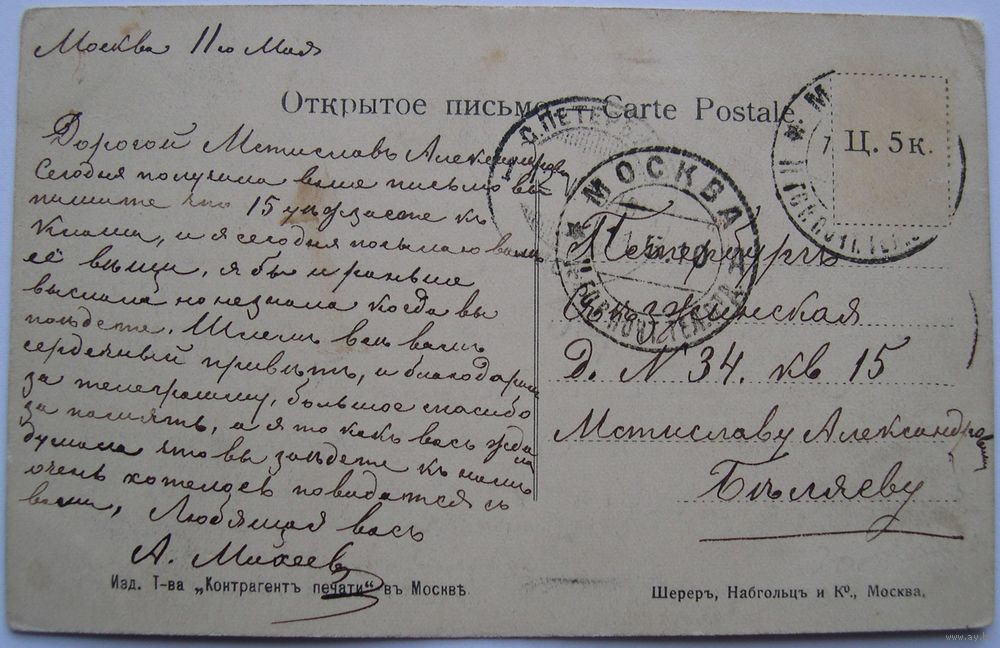 Москва 11го Мая
Открытое письмо. — Carte Postale.
Дорогой Мстиславъ Александрови
Сегодня получила ваше письмо вы
пишите что 15 уѣдзаете къ
и я сегодня посылаю вамъ
её вѣщи, я бы и раньше
выслала но незнала когда вы
поѣдете. Шлемъ вамъ
сердечный привѣтъ, и благодарим
за телеграмму, большое спасибо
за память, а я то какъ васъ ждала
думала что вы заѣдете къ намъ
очень хотелось повидатся съ
вами, Любящая васъ
А. Михеева
С.ПЕТЕР
МОСКВА
Ц. 5 к.
Петербургъ
Д. № 34. кв 15
Мстиславу Александровичу
Бѣляеву
Изд. Т-ва „Контрагентъ печати“ въ Москвѣ
Шереръ, Набгольцъ и Ко., Москва.
www.ay.by